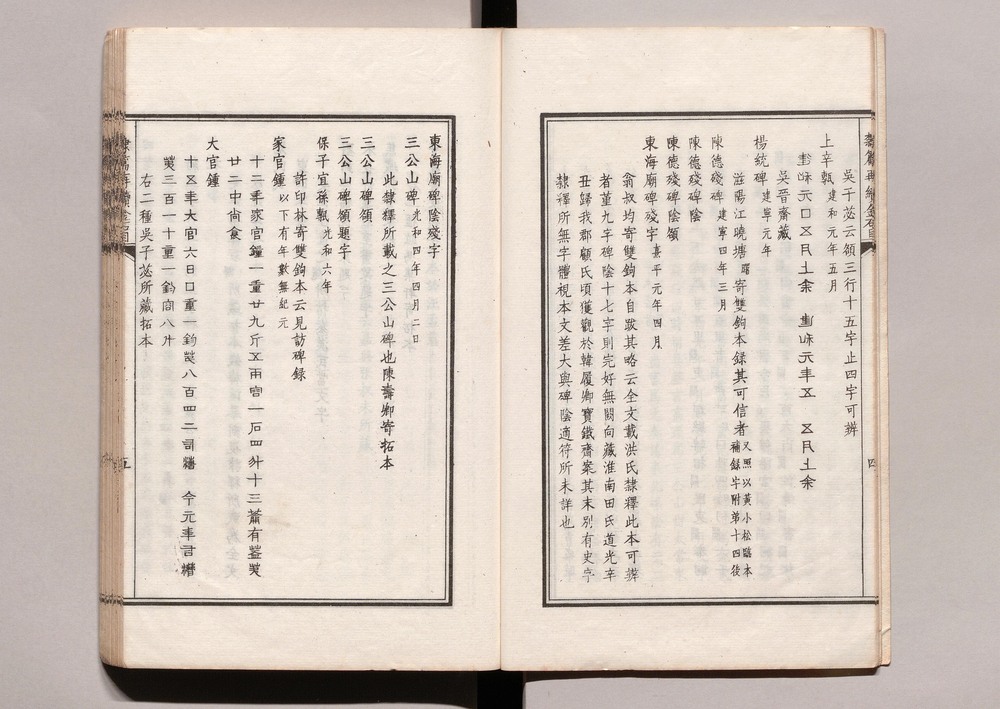 吴子苾云領三行十五字止四字可辨
上辛甎建和元年五月
建和元口五月上余 建和元年五 五月上余
吴晉齋藏
楊統碑建寧元年
滋陽江曉塘寄雙鉤本錄其可信者又照以黃小松臨本
補錄字附第十四後
陳德殘碑建寧四年三月
陳德殘碑陰
陳德殘碑陰領
東海廟碑殘字熹平元年四月
翁叔均寄雙鉤本自跋其略云全文載洪氏隸釋此本可辨
者董九字碑陰十七字則完好無闕向藏淮南田氏道光辛
丑歸我郡顧氏頃獲觀於韓履卿寶鐵齋案其末別有史字
隸釋所無字體視本文差大與碑陰適符所未詳也
四
東海廟碑陰殘字
三公山碑光和四年四月二日
此隸釋所載之三公山碑也陳壽卿寄拓本
三公山碑領
三公山碑領題字
保子宜孫甎光和六年
許印林寄雙鉤本云見訪碑錄
家官鍾以下有年數無紀元
十二年家官鍾一重廿九斤五兩官一石四升十三蕭有盩
廿二中尚食
大官鍾
十五年大官六日口重一鈞八百四二司 今元年言
三百一十重一鈞八斤
右二種吴子苾所藏拓本
五